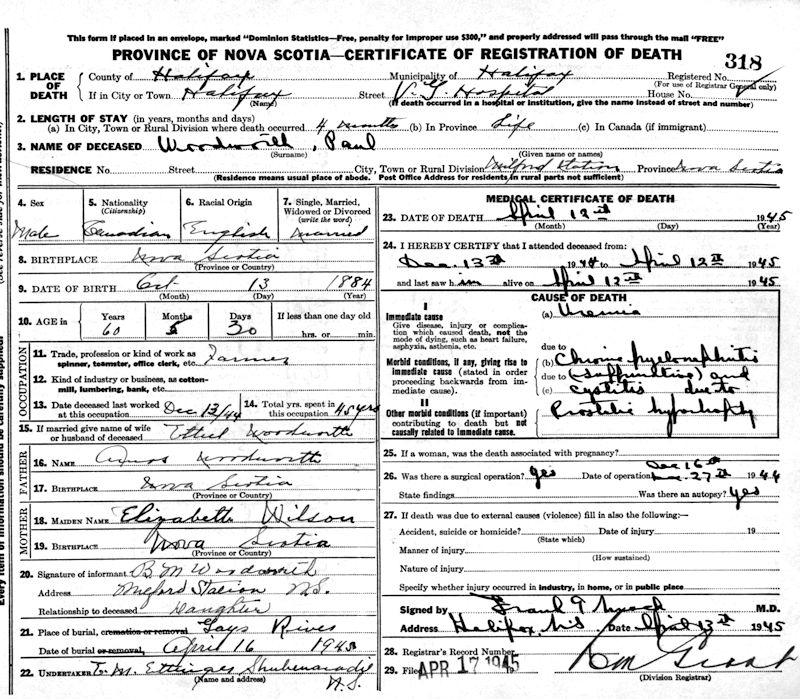 This form if placed in an envelope, marked "Dominion Statistics—Free, penalty for improper use $300," and properly addressed will pass through the mail "FREE"
PROVINCE OF NOVA SCOTIA—CERTIFICATE OF REGISTRATION OF DEATH
318
1. PLACE OF DEATH County of Halifax Municipality of Halifax Registered No.
(For use of Registrar General only)
If in City or Town Halifax Street V. G. Hospital House No.
(Name) (If death occurred in a hospital or institution, give the name instead of street and number)
2. LENGTH OF STAY (in years, months and days)
(a) In City, Town or Rural Division where death occurred 4 months (b) In Province Life (c) In Canada (if immigrant)
3. NAME OF DECEASED Woodworth, Paul
(Surname) (Given name or names)
RESIDENCE No. Street City, Town or Rural Division Milford Station Province Nova Scotia
(Residence means usual place of abode. Post Office Address for residents in rural parts not sufficient)
4. Sex 5. Nationality (Citizenship) 6. Racial Origin 7. Single, Married, Widowed or Divorced (write the word)
Male Canadian English Married
8. BIRTHPLACE Nova Scotia
(Province or Country)
9. DATE OF BIRTH Oct 13 1884
(Month) (Day) (Year)
10. AGE in Years Months Days If less than one day old
60 5 30 hrs. or min.
OCCUPATION
11. Trade, profession or kind of work as spinner, teamster, office clerk, etc. Farmer
12. Kind of industry or business, as cotton-mill, lumbering, bank, etc.
13. Date deceased last worked at this occupation Dec 13/44 14. Total yrs. spent in this occupation 45 yrs
15. If married give name of wife or husband of deceased Ethel Woodworth
FATHER
16. NAME Amos Woodworth
17. BIRTHPLACE Nova Scotia
(Province or Country)
MOTHER
18. MAIDEN NAME Elizabeth Wilson
19. BIRTHPLACE Nova Scotia
(Province or Country)
20. Signature of informant B M Woodworth
Address Milford Station N.S.
Relationship to deceased Daughter
21. Place of burial, cremation or removal Gays River
Date of burial or removal April 16 1945
22. UNDERTAKER E. M. Ettinger Shubenacadie
(Name and address) N.S.
MEDICAL CERTIFICATE OF DEATH
23. DATE OF DEATH April 12th 1945
(Month) (Day) (Year)
24. I HEREBY CERTIFY that I attended deceased from:
Dec. 13th 1944 to April 12th 1945
and last saw him alive on April 12th 1945
CAUSE OF DEATH
I
Immediate cause (a) Uremia
Give disease, injury or complication which caused death, not the mode of dying, such as heart failure, asphyxia, asthenia, etc.
due to
Morbid conditions, if any, giving rise to immediate cause (stated in order proceeding backwards from immediate cause).
(b) Chronic pyelonephritis
due to (suppurative) and
(c) cystitis due to
Prostatic hypertrophy
II
Other morbid conditions (if important) contributing to death but not causally related to immediate cause.
25. If a woman, was the death associated with pregnancy?
Dec 16th
26. Was there a surgical operation? yes Date of operation 27th 1944
State findings Was there an autopsy? yes
27. If death was due to external causes (violence) fill in also the following:—
Accident, suicide or homicide? Date of injury 19
(State which)
Manner of injury
(How sustained)
Nature of injury
Specify whether injury occurred in industry, in home, or in public place
Signed by Frank G M.D.
Address Halifax, N.S. Date April 13th 1945
28. Registrar's Record Number
29. Filed APR 17 1945
(Division Registrar)